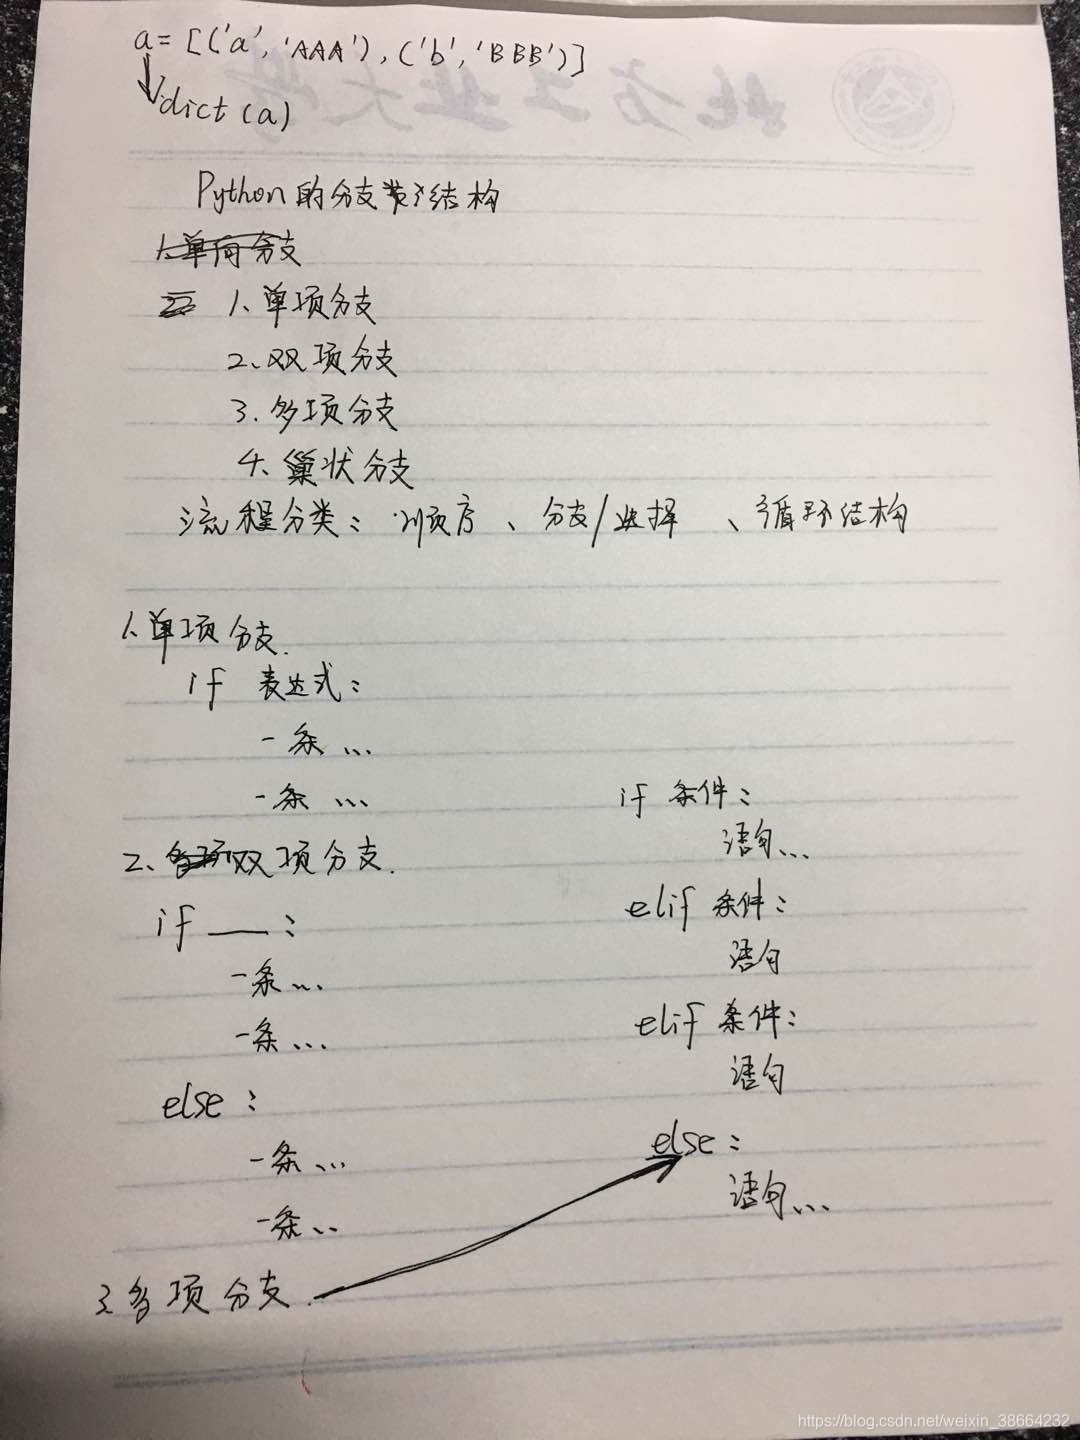 a = [('a', 'AAA'), ('b', 'BBB')]
dict (a)
Python的分支结构
1.单向分支
1、单项分支
2、双项分支
3.多项分支
4、巢状分支
流程分类：顺序、分支/选择、循环结构
1.单项分支.
if 表达式：
一条 ...
一条 ...
2、双项分支.
if ___ ：
一条...
一条...
else ：
一条...
一条...
3多项分支.
if 条件：
语句...
elif 条件：
语句
elif 条件：
语句
else：
语句...
https://blog.csdn.net/weixin_38664232